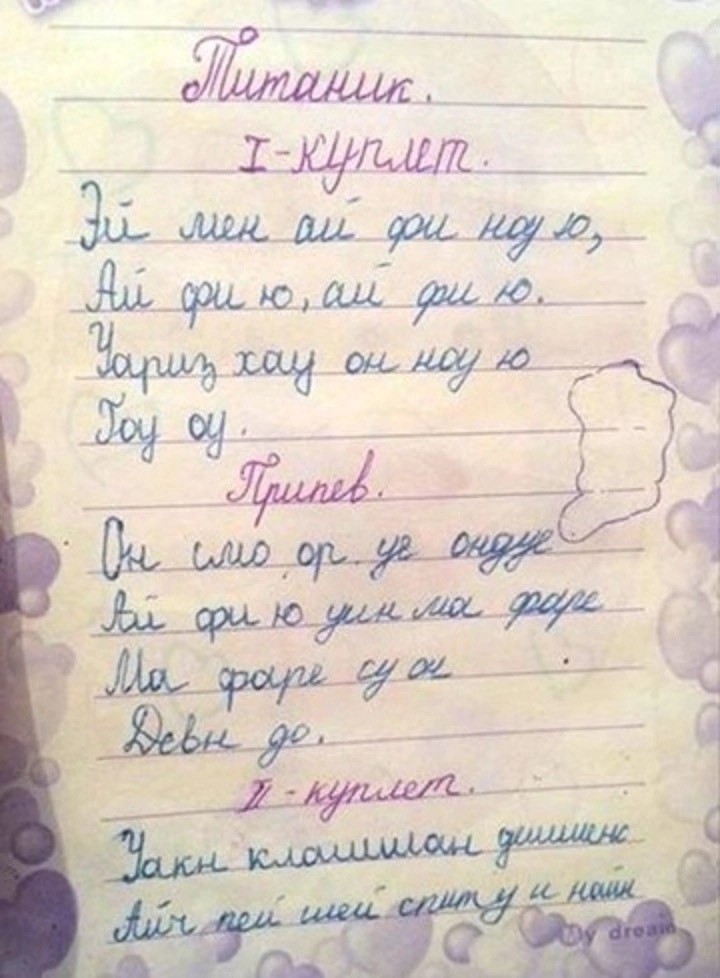 Титаник.
I-куплет.
Эй мен ай фи ноу ю,
Ай фи ю, ай фи ю.
Уариз хау он ноу ю
Гоу оу.
Припев.
Он смо ор уе ондуе
Ай фи ю уин ма фаре
Ма фаре су он
Девн до.
II-куплет.
Уакн клашшан дешшене
Айч пей шей спит у и найн
My dream